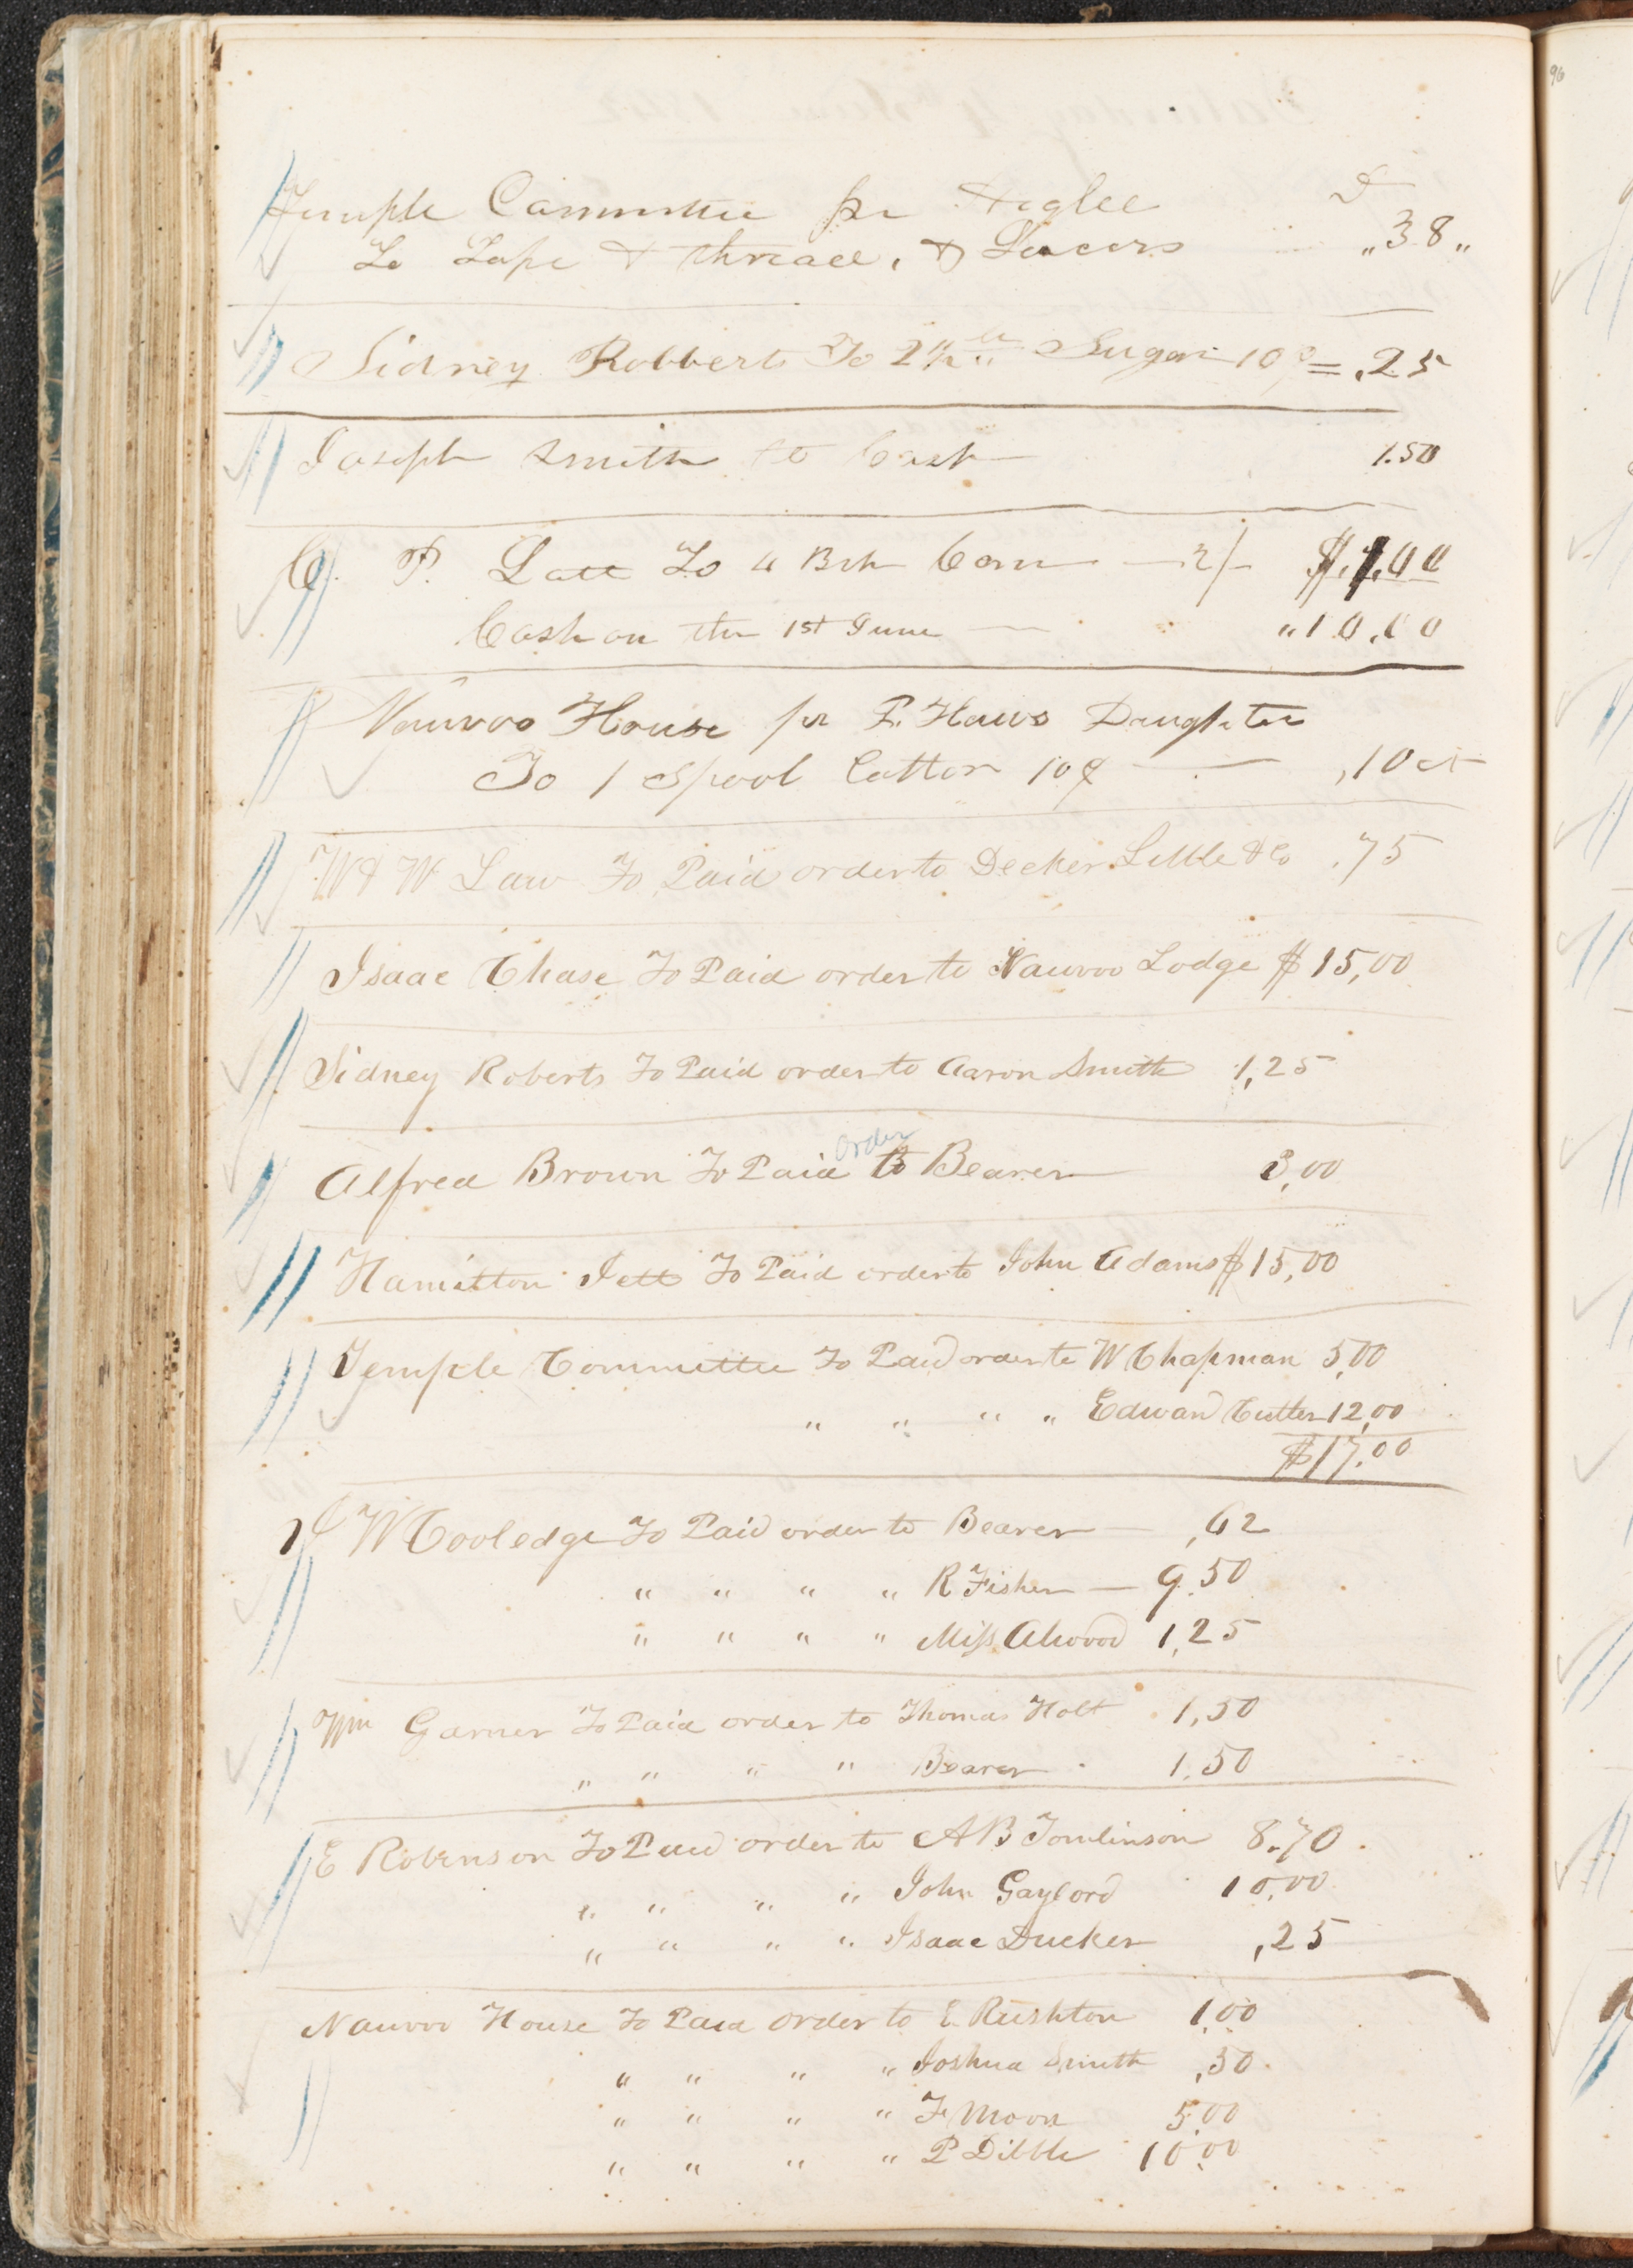 Temple Committee per Higbee
To Tape & thread, & Laces „38„
Sidney Robberts To 2½ lb Sugar 10c = ,25
Joseph Smith to Cash 1.50
C. P. Lott To 4 Bsh Corn — 2/- $1.00
Cash on the 1st June — „10.00
Nauvoo House per P. Haws Daughter
To 1 Spool Cotton 10¢ — ,10 ct
W & W Law To Paid order to Decker Little & Co .75
Isaac Chase To Paid order to Nauvoo Lodge $15,00
Sidney Roberts To Paid order to Aaron Smith 1,25
Alfred Brown To Paid order to Bearer 3,00
Hamilton Jett To Paid order to John Adams $15,00
Temple Committee To Paid order to W Chapman 5,00
" " " " Edward Cutler 12,00
$17.00
J W Cooledge To Paid order to Bearer — ,62
" " " " R Fisher — 9.50
" " " " Miss Alwood 1,25
Wm Garner To Paid order to Thomas Holt 1,50
" " " " Bearer 1,50
E Robinson To Paid order to A B Tomlinson 8.70
" " " " John Gaylord 10,00
" " " " Isaac Ducker ,25
Nauvoo House To Paid order to E Rushton 1,00
" " " " Joshua Smith ,50
" " " " F Moon 5.00
" " " " P Dibble 10.00
96